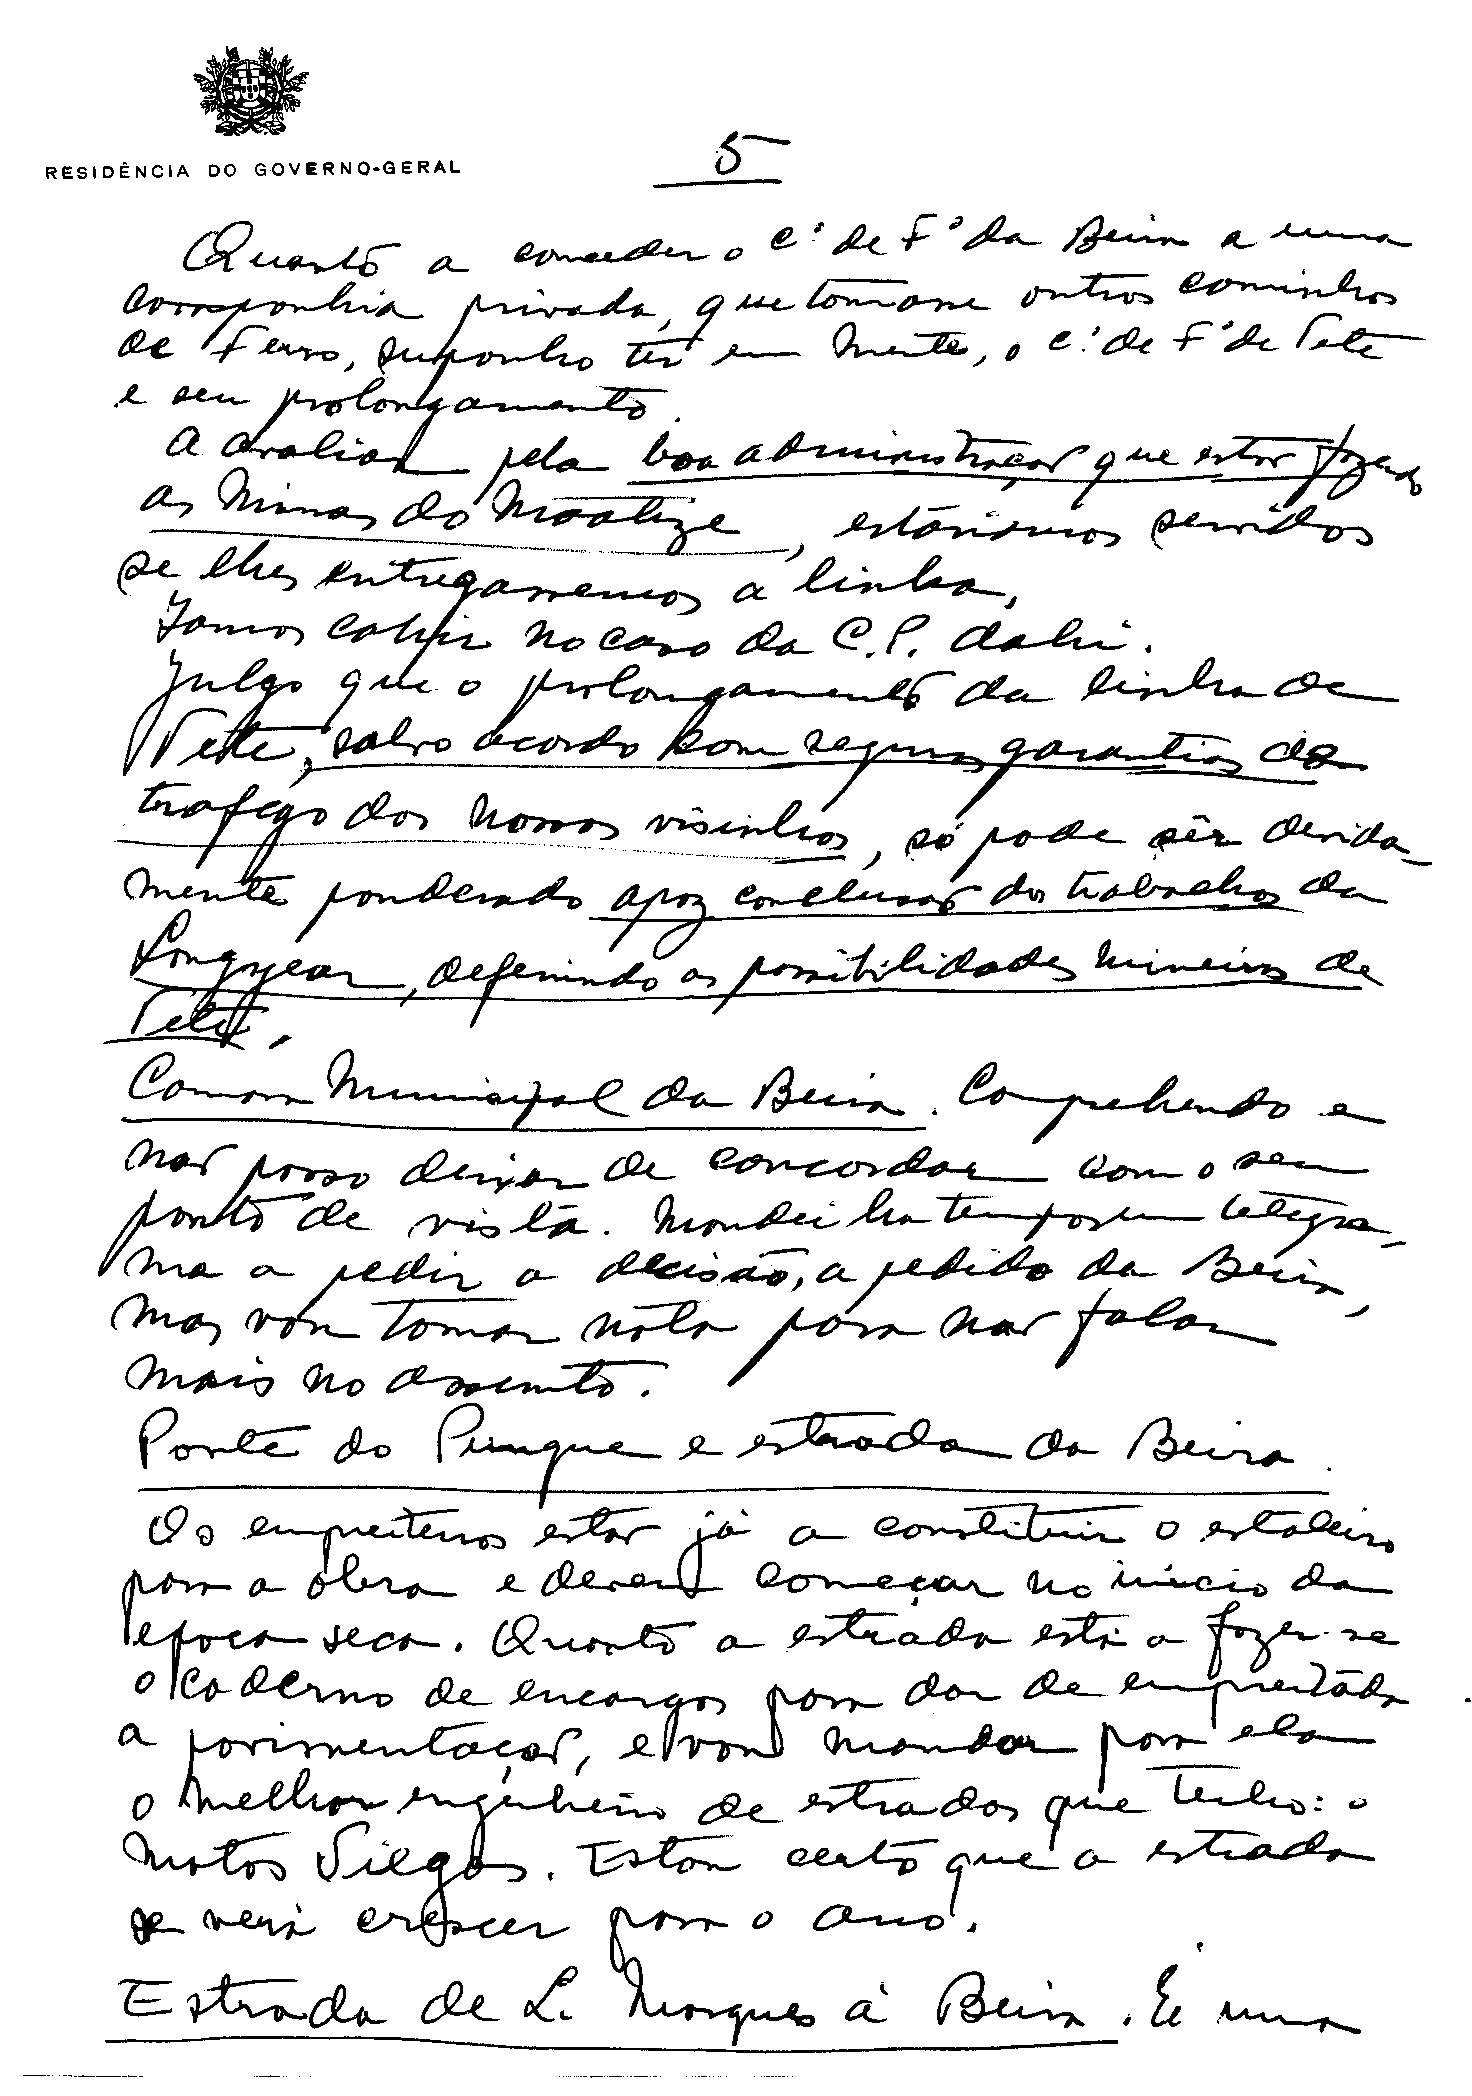 RESIDÊNCIA DO GOVERNO-GERAL
5
Quanto a conceder o C.º de F.º da Beira a uma
companhia privada, que tomasse outros caminhos
de ferro, suponho ter em mente, o C.º de F.º de Tete
e seu prolongamento.
A avaliar pela boa administraçao que estao fazendo
as Minas do Moatize, estariamos servidos
se lhes entregassemos a linha.
Iamos cahir no caso da C.P. dahi.
Julgo que o prolongamento da linha de
Tete, salvo acordo com seguras garantias de
trafego dos nossos visinhos, só pode sêr devida-
mente ponderado apoz conclusao dos trabalhos da
Longyear, definindo as possibilidades mineiras de
Tete.
Camara Municipal da Beira. Comprehendo e
nao posso deixar de concordar com o seu
ponto de vista. Mandei ha tempos um telegra-
ma a pedir a decisão, a pedido da Beira,
mas vou tomar nota para nao falar
mais no assunto.
Ponte do Pungue e estrada da Beira.
Os empreiteiros estao já a constituir o estaleiro
para a obra e devem começar no início da
epoca seca. Quanto a estrada está a fazer-se
o caderno de encargos para dar de empreitada
a pavimentaçao, e vou mandar para ela
o melhor engenheiro de estradas que tenho: o
Matos Viegas. Estou certo que a estrada
se verá crescer para o ano.
Estrada de L. Marques á Beira. É uma